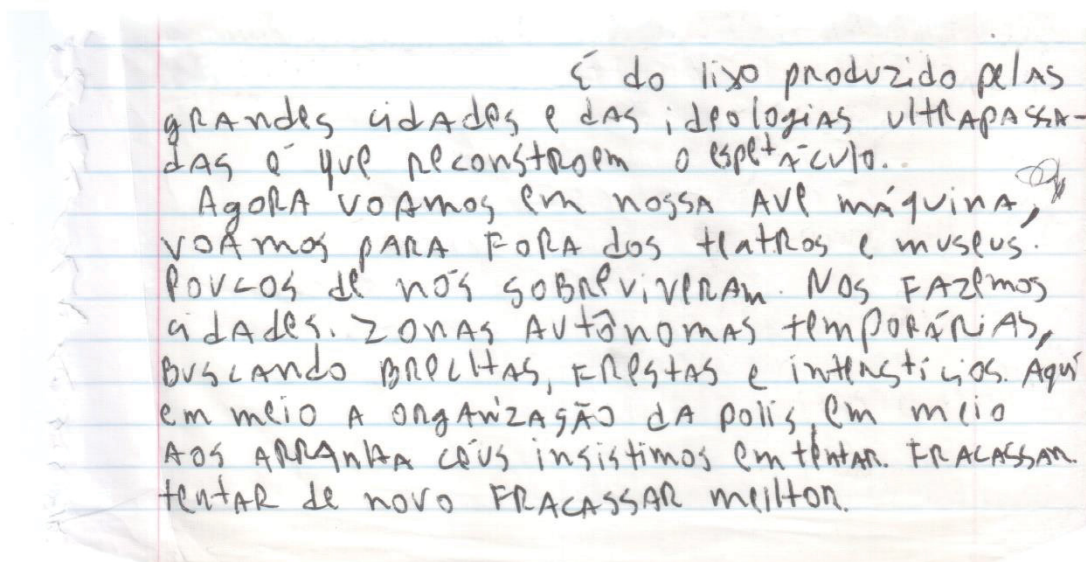 É do lixo produzido pelas
grandes cidades e das ideologias ultrapassa-
das é que reconstroem o espetáculo.
Agora voamos em nossa ave máquina,
voamos para fora dos teatros e museus.
Poucos de nós sobreviveram. Nos fazemos
cidades. Zonas autônomas temporárias,
buscando brechas, frestas e interstícios. Aqui
em meio a organização da polis, em meio
aos arranha céus insistimos em tentar. Fracassar.
tentar de novo fracassar meilhor.